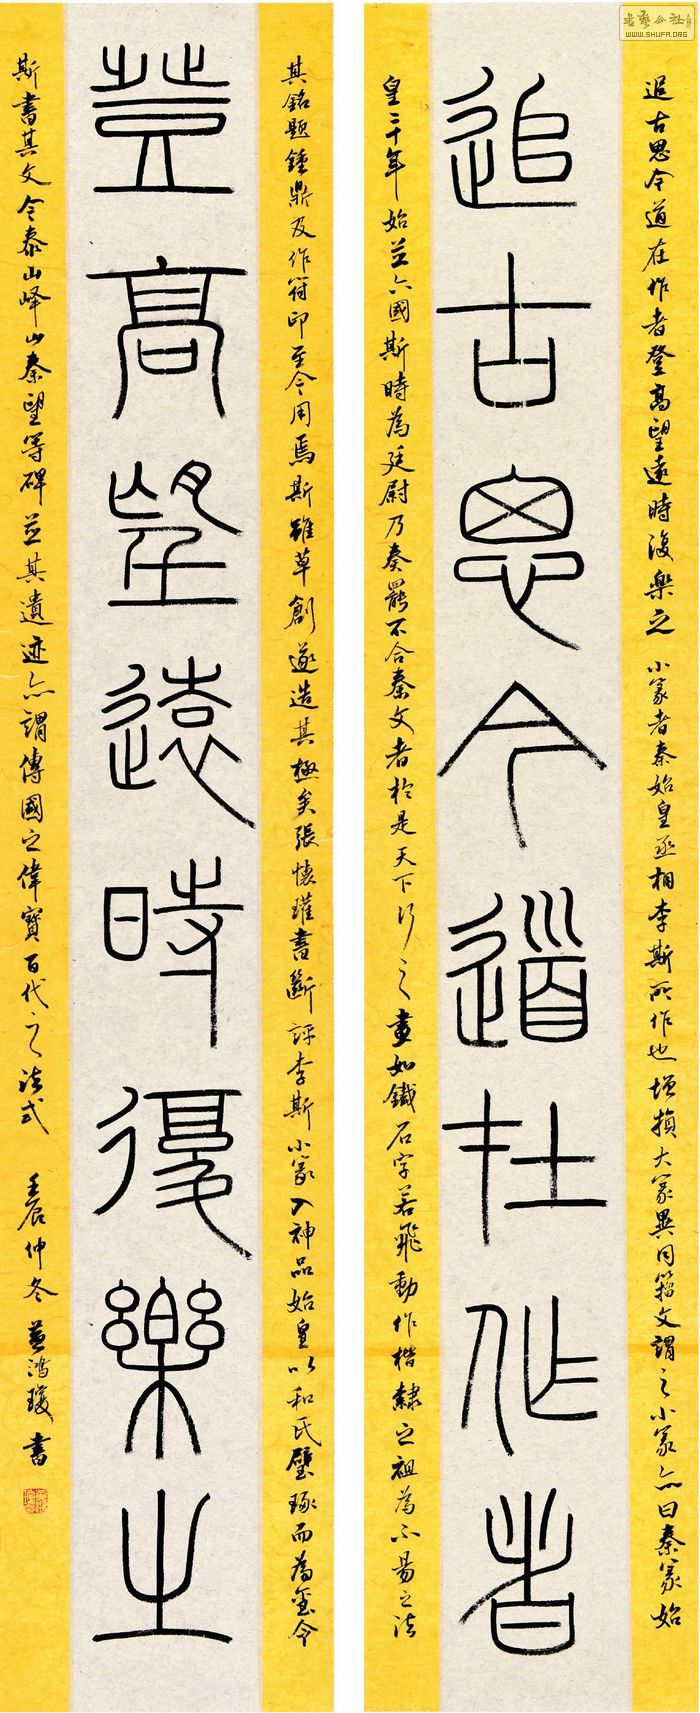 追古思今道在作者
登高望遠時復樂之
追古思今道在作者登高望遠時復樂之 小篆者秦始皇丞相李斯所作也增損大篆異同籀文謂之小篆亦曰秦篆始
皇二十年始並六國斯時為廷尉乃奏罷不合秦文者於是天下行之畫如鐵石字若飛動作楷隸之祖為不易之法
其銘題鍾鼎及作符印至今用焉斯雖草創遂造其極矣張懷瓘書斷評李斯小篆入神品始皇以和氏璧琢而為璽令
斯書其文今泰山嶧山秦望等碑並其遺迹亦謂傳國之偉寶百代之法式 壬辰仲冬 書
書藝公社
WWW.SHUFA.ORG